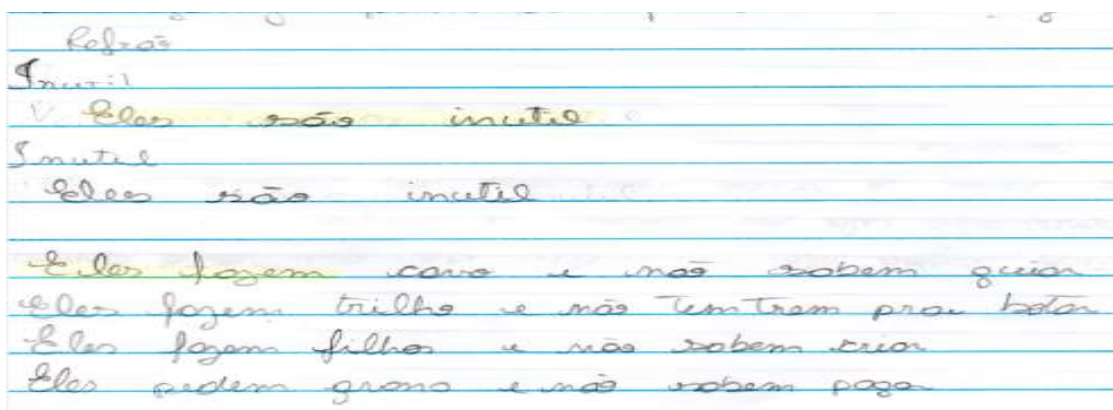 Refrão
Inutil
Eles são inutil
Inutil
Eles são inutil
Eles fazem carro e não sabem guiar
Eles fazem trilho e não tem trem pra botar
Eles fazem filho e não sabem criar
Eles pedem grana e não sabem paga